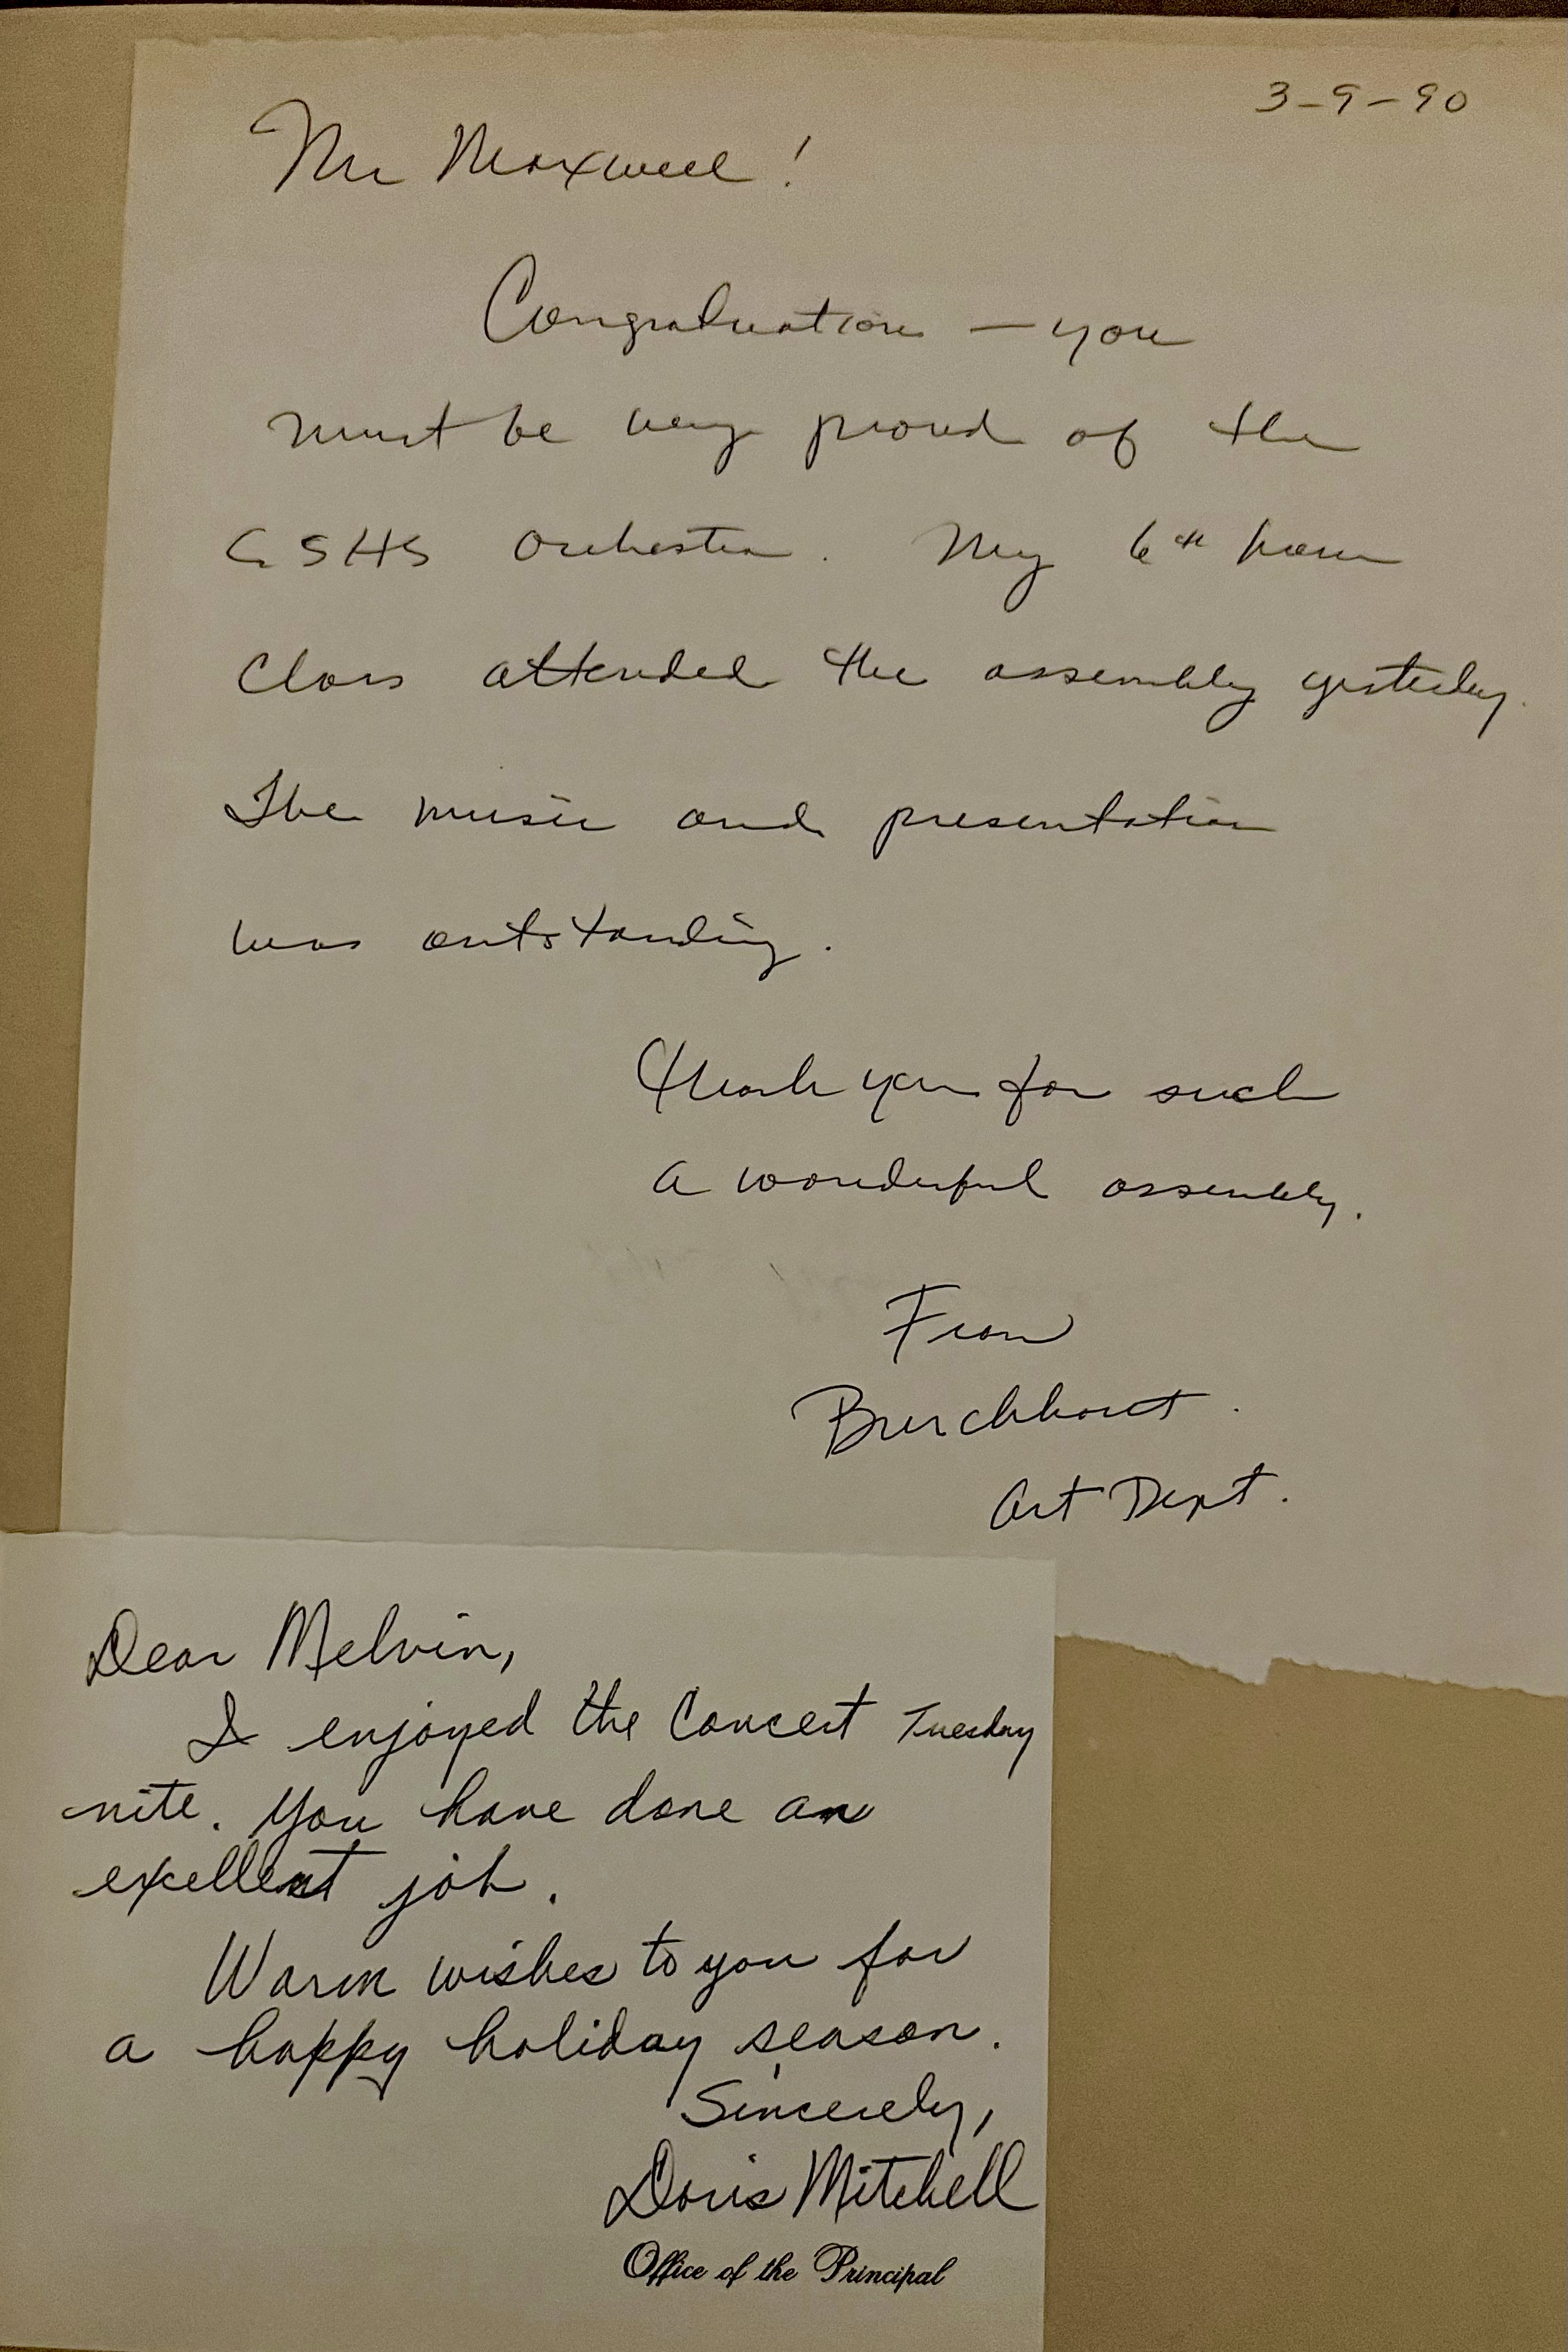 3-9-90
Mr Maxwell!
Congraduation — you
must be very proud of the
GSHS Orchestra. My 6th hour
Class attended the assembly yesterday.
The music and presentation
was outstanding.
Thank you for such
a wonderful assembly.
From
Burchhart.
Art Dept.
Dear Melvin,
I enjoyed the Concert Tuesday
nite. You have done an
excellent job.
Warm wishes to you for
a happy holiday season.
Sincerely,
Doris Mitchell
Office of the Principal